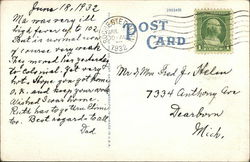 June 18, 1932
Ma was very ill
high fever up to 102.
But is normal now
of course very weak.
They moved her yesterday
to Colonial. Get very
hot. Hope you got home
O.K. and keep your work
Wished I was home.
to
Best regards to all
POST
CARD
1932
Mr & Mrs Fred J. Helan
7334 Anthony Ave
Dearborn
Mich.